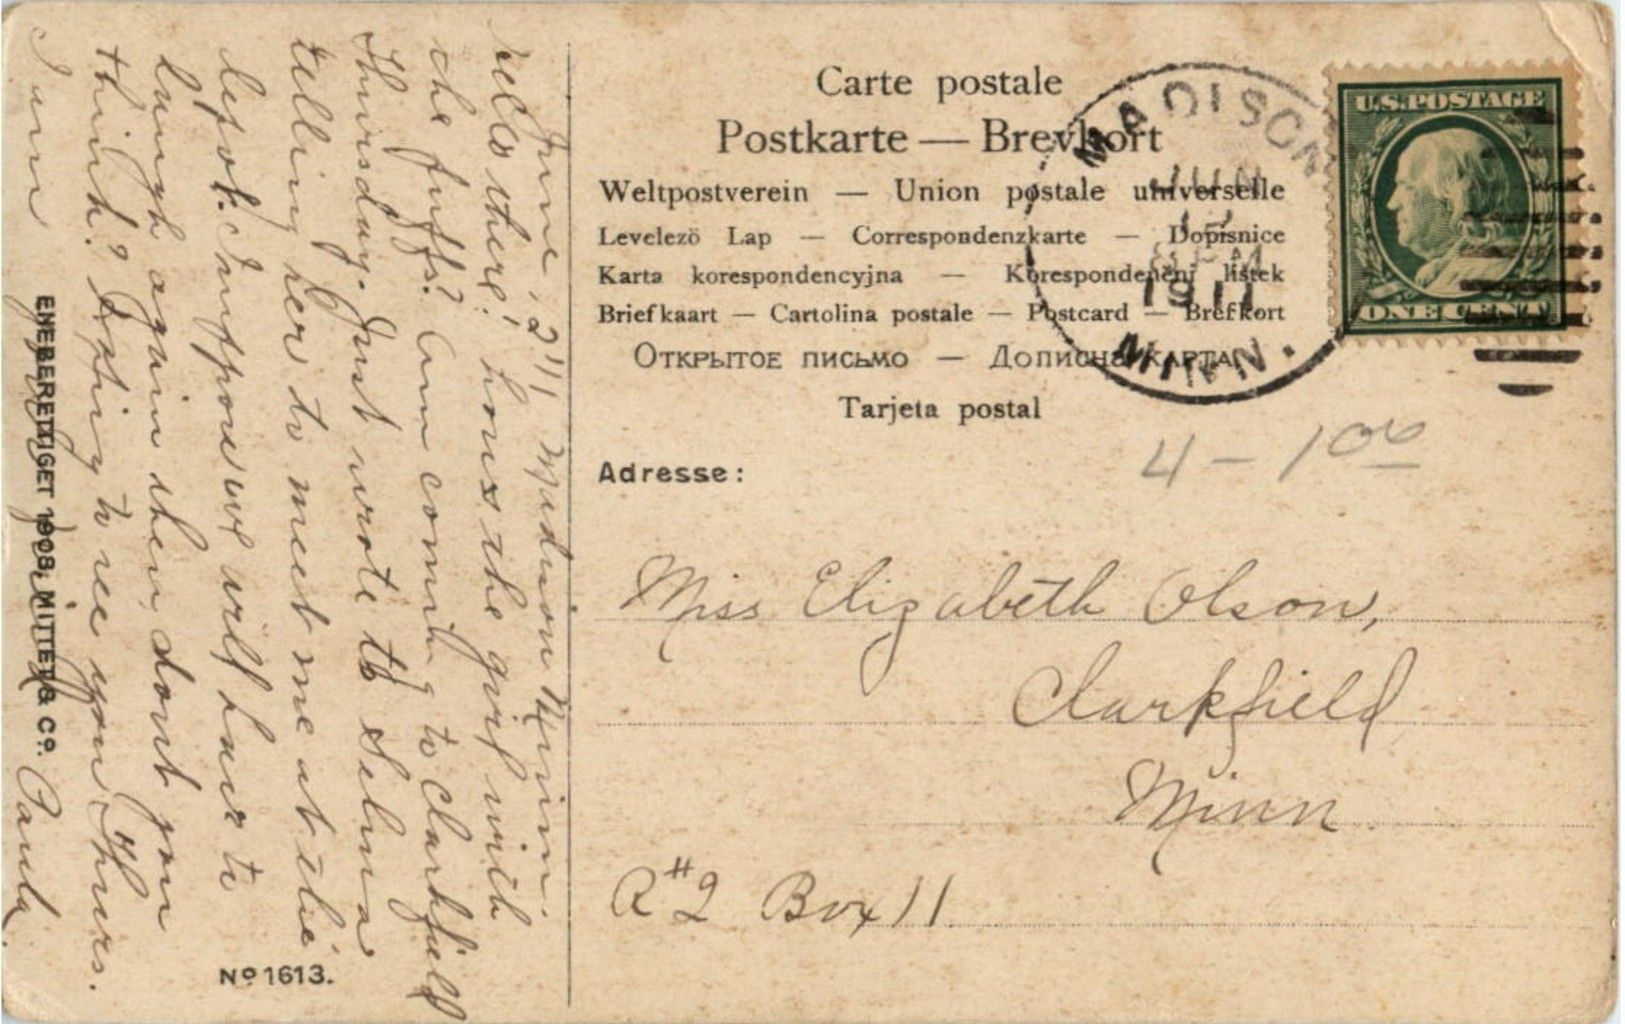 June, 2'11 Madison Minn.
Hello there! hows the girl with
the fuffs? Am coming to Clarkfield
Thursday. Just wrote to Selma
telling her to meet me at the
depot. I suppose we will have to
laugh again then, dont you
think? Hoping to see you Thurs.
I am
Paula.
ENEBERETTIGET 1908, MITTET & Co.
No 1613.
Carte postale
Postkarte — Brevkort
Weltpostverein — Union postale universelle
Levelezö Lap — Correspondenzkarte — Dopisnice
Karta korespondencyjna — Korespondenčni listek
Briefkaart — Cartolina postale — Postcard — Brefkort
Открытое письмо — Дописна карта
Tarjeta postal
MADISON
JUN
1911
MINN.
U.S.POSTAGE
ONE CENT
4 - 100
Adresse:
Miss Elizabeth Olson,
Clarkfield
Minn.
R#2 Box 11